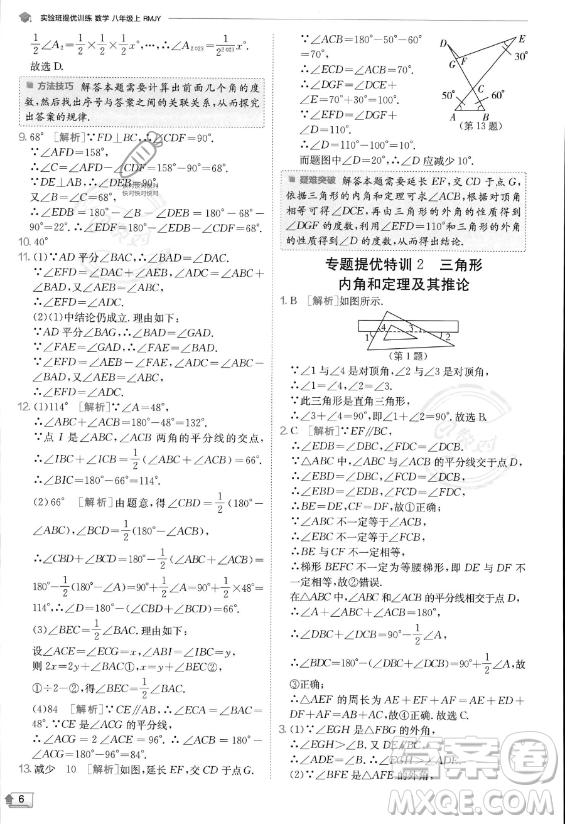 实验班提优训练 数学 八年级上 RMJY
1/2∠A₂=1/2×1/2×1/2x°,…,∴∠A₂₀₂₃=1/2²⁰²³x°.
故选D.
方法技巧 解答本题需要计算出前面几个角的度
数,然后找出序号与答案之间的关联关系,从而探究
出答案的规律.
9. 68° [解析]∵FD⊥BC,∴∠CDF=90°.
∵∠AFD=158°,
∴∠C=∠AFD-∠CDF=158°-90°=68°.
∵DE⊥AB,∴∠DEB=90°.
又∠B=∠C=68°,
∴∠EDB=180°-∠B-∠DEB=180°-68°-
90°=22°.∴∠EDF=90°-∠EDB=68°.
10. 40°
11. (1)∵AD平分∠BAC,∴∠BAD=∠DAC.
∵∠EFD=∠DAC+∠AEB,∠EAD=∠BAD+
∠ABC,且∠AEB=∠ABC,
∴∠EFD=∠EAD=∠EAF.
(2)(1)中结论仍成立.理由如下:
∵AD平分∠BAG,∴∠BAD=∠GAD.
∵∠FAE=∠GAD,∴∠FAE=∠BAD.
∵∠EFD=∠AEB-∠FAE,∠EAF=∠ABC-
∠BAD,∠AEB=∠ABC,
∴∠EFD=∠EAF.
12. (1)114° [解析]∵∠A=48°,
∴∠ABC+∠ACB=180°-48°=132°.
∵点I是∠ABC,∠ACB两角的平分线的交点,
∴∠IBC+∠ICB=1/2(∠ABC+∠ACB)=66°.
∴∠BIC=180°-66°=114°.
(2)66° [解析]由题意,得∠CBD=1/2(180°-
∠ABC),∠BCD=1/2(180°-∠ACB),
∴∠CBD+∠BCD=180°-1/2(∠ABC+∠ACB)=
180°-1/2(180°-∠A)=90°+1/2∠A.∴∠BDC=
180°-(∠CBD+∠BCD)=90°-1/2∠A=90°-1/2×48°
=66°.
(3)∠BEC=1/2∠BAC.理由如下:
设∠ACE=∠ECG=x,∠ABI=∠IBG=y,
则2x=2y+∠BAC①,x=y+∠BEC②,
①÷2-②,得∠BEC=1/2∠BAC.
(4)90° [解析]∵CE∥AB,
∴∠ACE=∠A,∠ABC=∠ECG.
∴∠ACG=2∠ACE=96°.∴∠ACB=180°-
∠ACG=180°-96°=84°.
13. 减少 10 [解析]如图,延长EF,交CD于点G,
∵∠ACB=180°-50°-60°=
70°,
∴∠ECD=∠ACB=70°.
∵∠DGF=∠DCE+∠E,
∴∠DGF=70°+30°=100°.
∵∠EFD=110°,∠EFD=
∠DGF+∠D,∴∠D=10°.
而题图中∠D=20°,∴∠D应减少10°.
D
E
F
G
30°
50°
60°
C
A B
(第13题)
疑难突破 解答本题需要延长EF,交CD于点G,
依据三角形的内角和定理可求∠ACB,根据对顶角
相等可得∠DCE,再由三角形的外角的性质得到
∠DGF的度数,利用∠EFD=110°和三角形的外
角的性质得到∠D的度数,从而得出结论.
专题提优特训2 三角形
内角和定理及其推论
1. B [解析]如图所示.
(第1题)
∵∠1与∠4是对顶角,∠2与∠3是对顶角,
∴∠1=∠4,∠2=∠3.
∵此三角形是直角三角形,
∴∠3+∠4=90°,即∠1+∠2=90°.故选B.
2. C [解析]∵EF∥BC,
∴∠EDB=∠DBC,∠FDC=∠DCB.
∵∠ABC,∠ACB的平分线交于点D,
∴∠EBD=∠DBC,∠FCD=∠DCB.
∴∠EDB=∠EBD,∠FDC=∠FCD.
∴BE=DE,CF=DF,故①正确;
∵∠ABC不一定等于∠ACB,
∴BE不一定等于CF.
∴梯形BEFC不一定是等腰梯形.
∴EF不一定是△ABC的中位线,故②错误.
在△ABC中,∠ABC+∠ACB=180°-∠A,
∵∠ABC和∠ACB的平分线交于点D,
∴∠DBC=1/2∠ABC,∠DCB=1/2∠ACB.
∴∠BDC=180°-(∠DBC+∠DCB)=180°-
1/2(∠ABC+∠ACB)=90°+1/2∠A,故③正确;
∴△AEF的周长为AE+EF+AF=AE+DE+
DF+AF=AE+BE+AF+CF=AB+AC,故④
正确.故选C.
3. (1)∵∠EGH是△FBG的外角,
∴∠EGH>∠B.
又DE∥BC,∴∠B=∠ADE.
∴∠EGH>∠ADE.
(2)∵∠BFE是△AFE的外角,∴∠BFE
6
答案圈
MXQE.COM